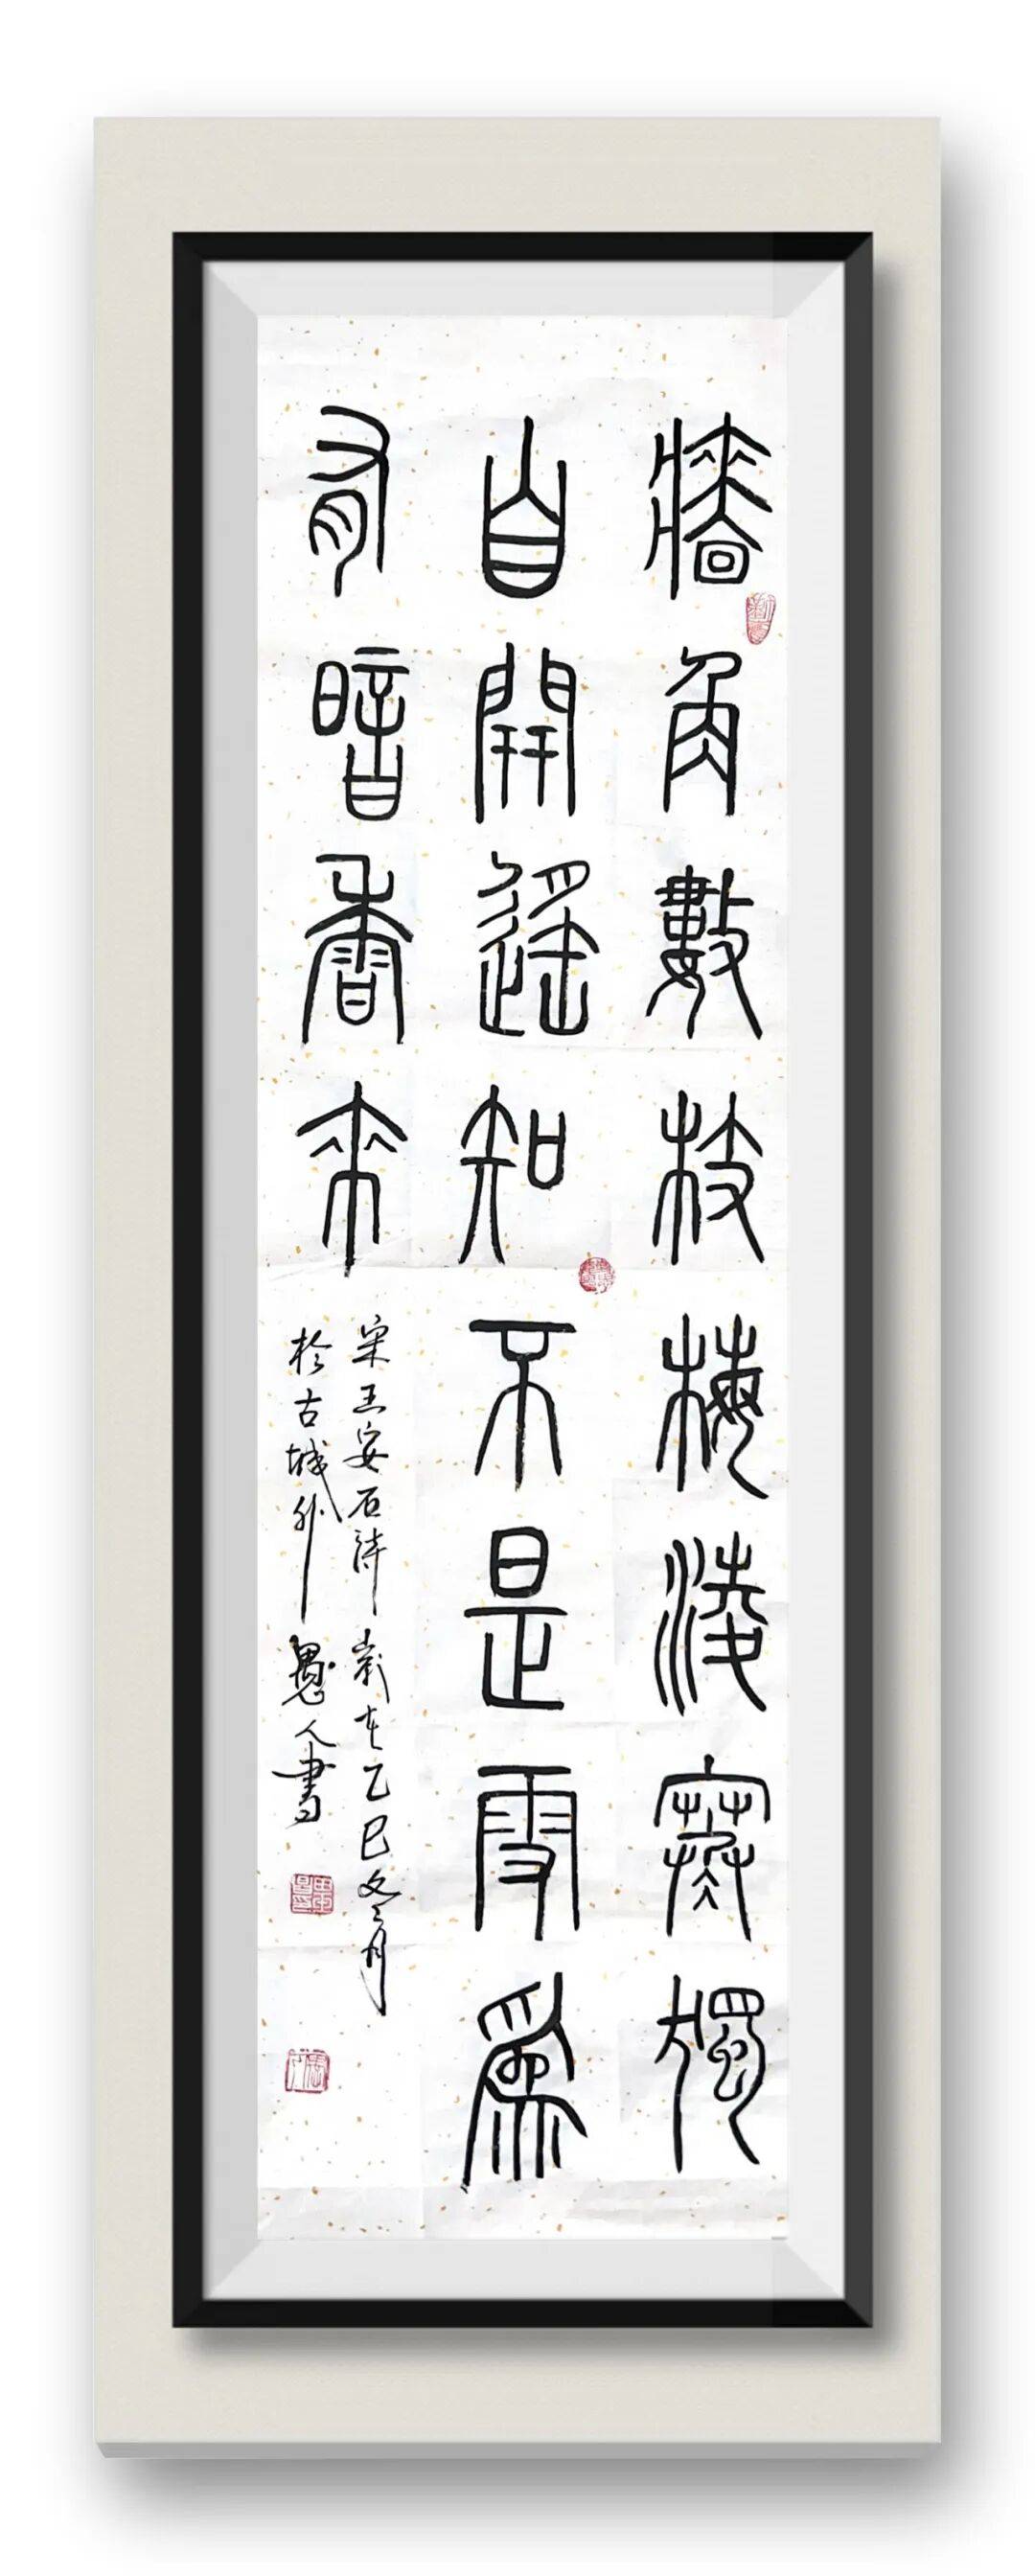 牆角數枝梅淩寒獨
自開遙知不是雪為
有暗香來
宋王安石詩歲在乙巳冬月
於古城外愚人書